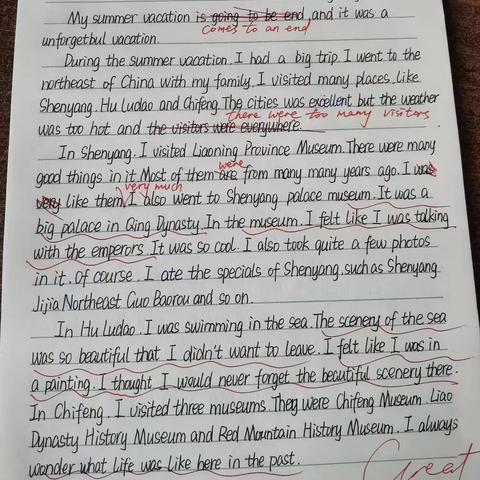 My summer vacation is going to be end, and it was a
comes to an end
unforgetbul vacation.
During the summer vacation. I had a big trip. I went to the
northeast of China with my family. I visited many places. like
Shenyang. Hu Ludao and Chifeng. The cities was excellent but the weather
there were too many visitors
was too hot and the visitors were everywhere.
In Shenyang. I visited Liaoning Province Museum. There were many
were
good things in it. Most of them are from many many years ago. I was
very much
very like them. I also went to Shenyang palace museum. It was a
big palace in Qing Dynasty. In the museum. I felt like I was talking
with the emperors. It was so cool. I also took quite a few photos
in it. Of course. I ate the specials of Shenyang. such as Shenyang
Jijia Northeast Guo Baorou and so on.
In Hu Ludao. I was swimming in the sea. The scenery of the sea
was so beautiful that I didn't want to leave. I felt like I was in
a painting. I thought I would never forget the beautiful scenery there.
In Chifeng. I visited three museums. They were Chifeng Museum. Liao
Dynasty History Museum and Red Mountain History Museum. I always
wonder what life was like here in the past.
Great